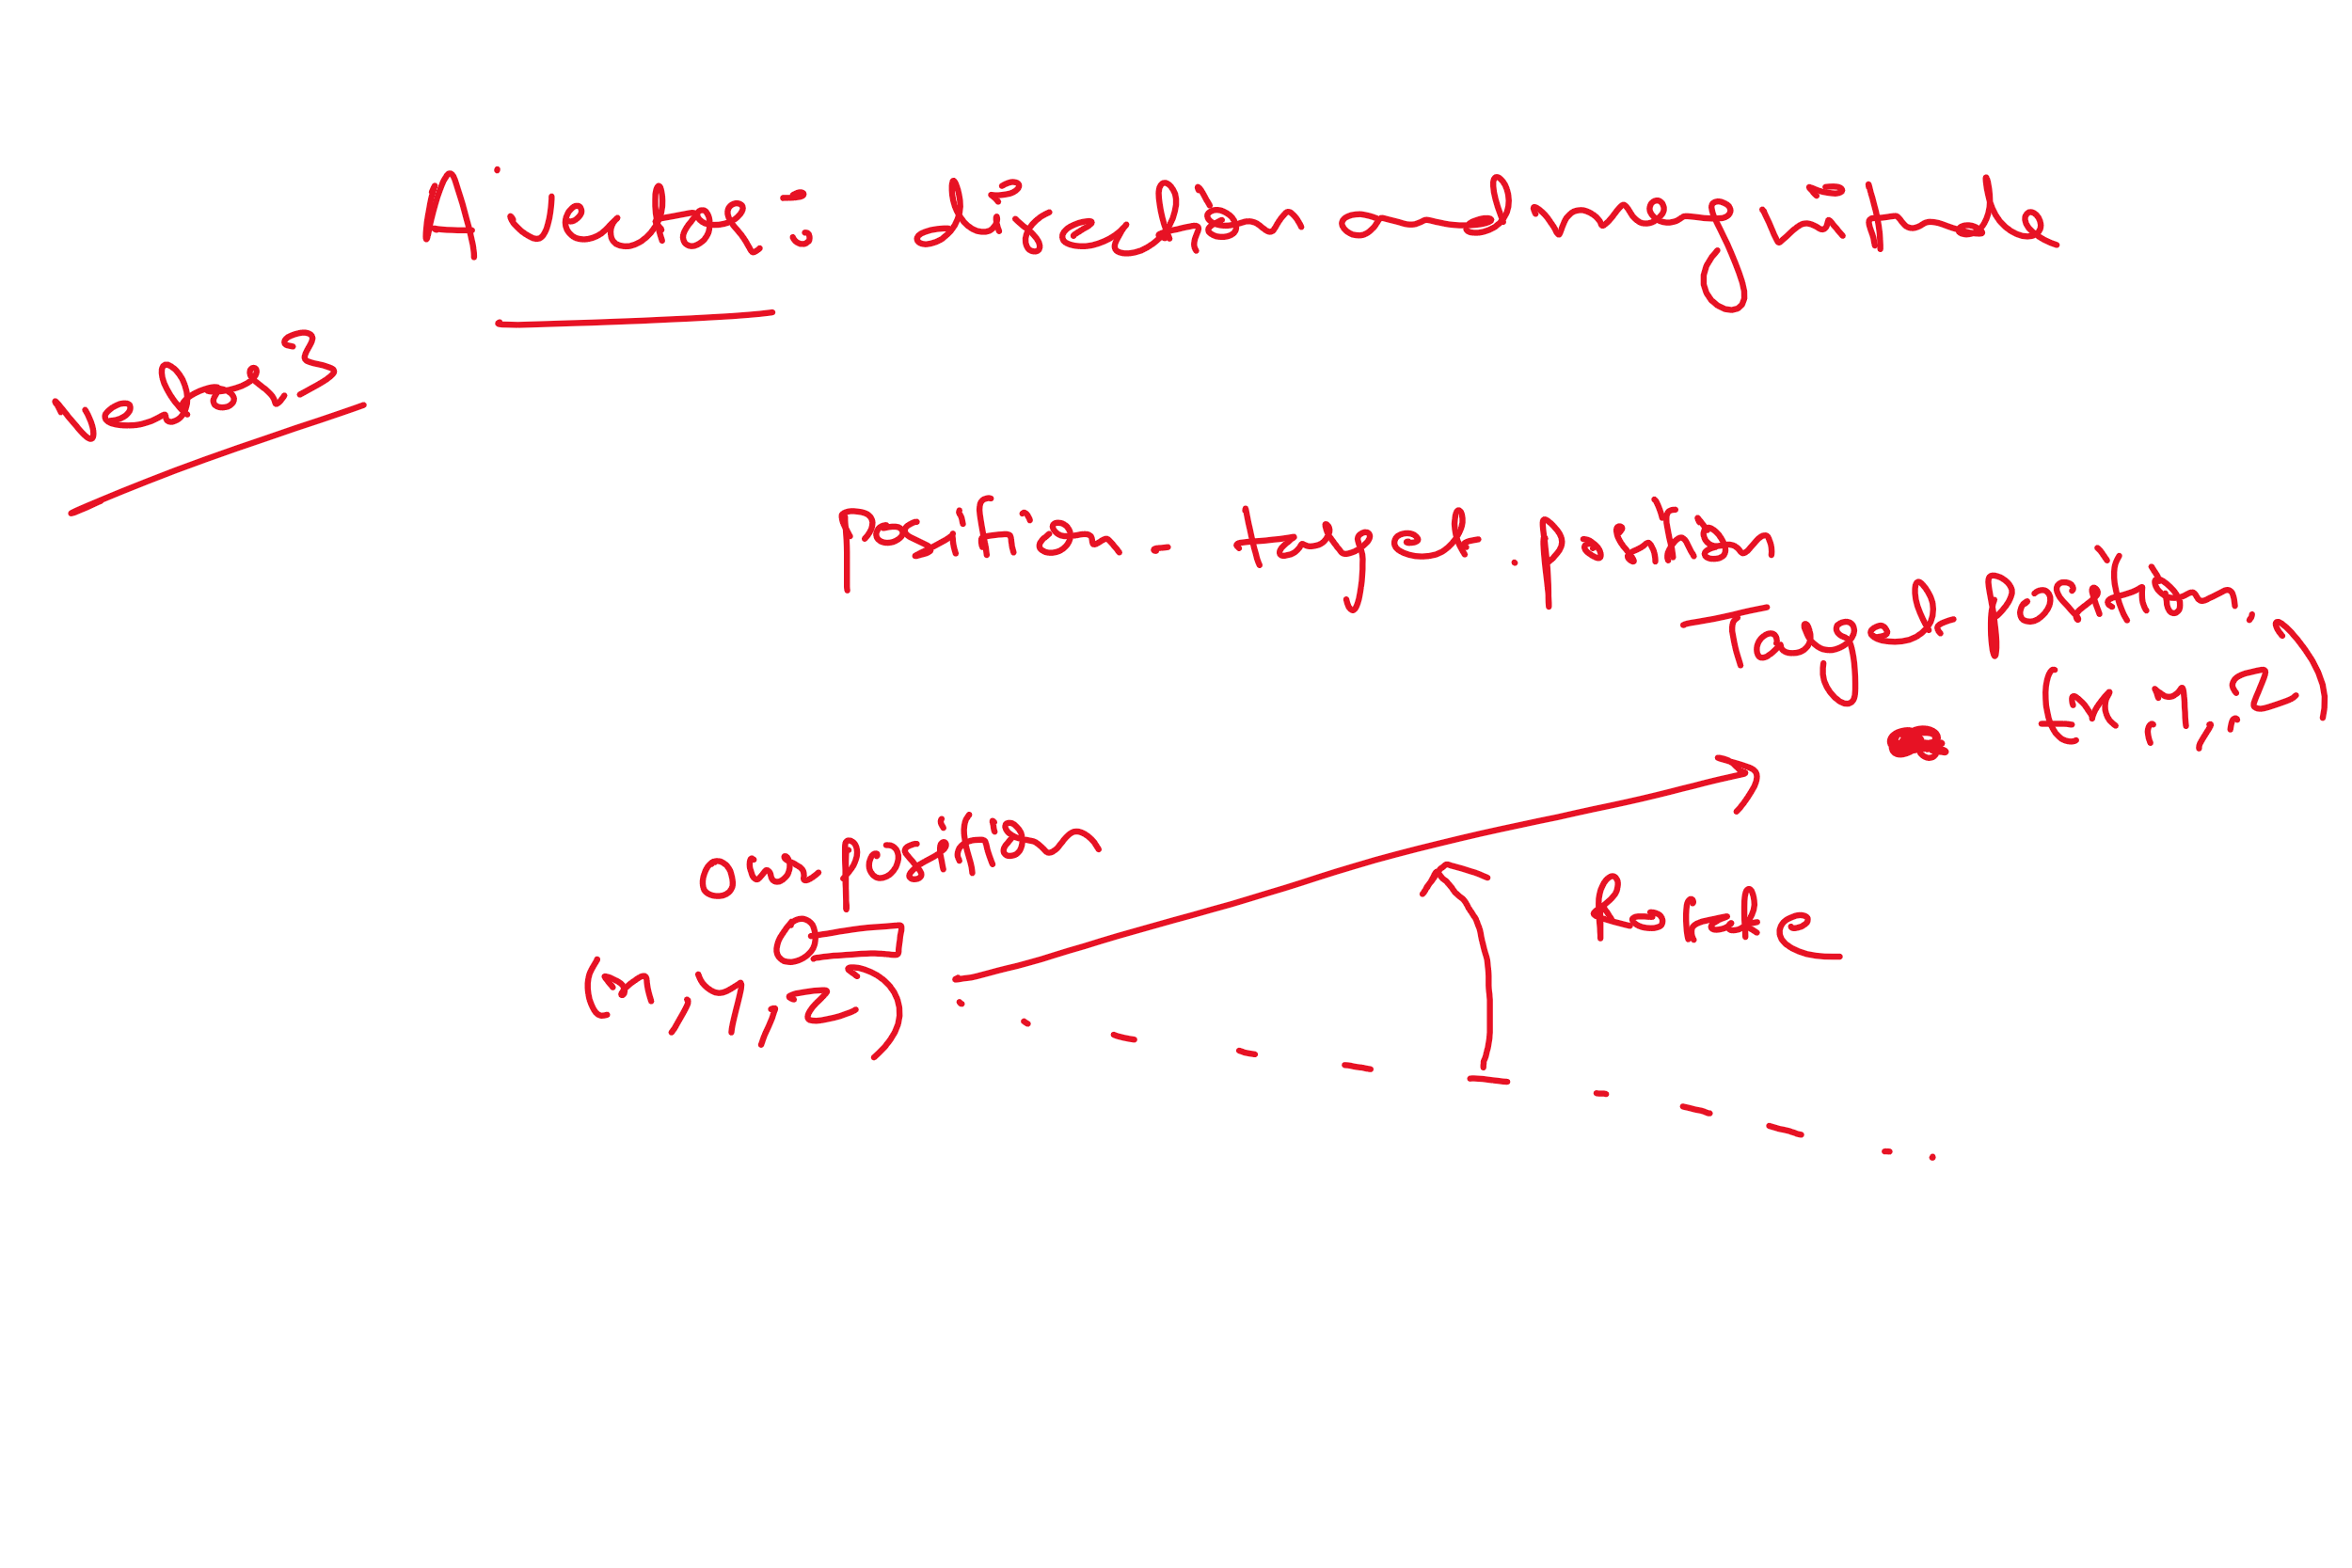 A vector = direction and magnitude
Vector3
position - target.position
Target position
(x, y, z)
our position
(x, y, z)
Rotate